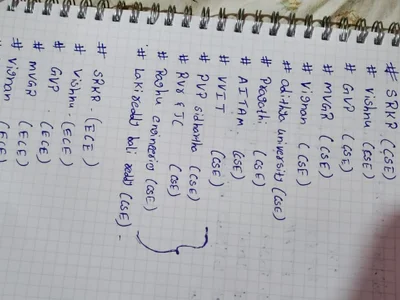 # SRKR (CSE)
# Vishnu (CSE)
# GVP (CSE)
# MVGR (CSE)
# Vignan (CSE)
# aditya university (CSE)
# Pragathi (CSE)
# AITAM. (CSE)
# VVIT (CSE)
# PVP sidhartha (CSE)
# RVR & JC (CSE)
# Raghu engineering (CSE)
# Lakireddy bali reddy (CSE) -
# SRKR. (ECE)
# Vishnu. (ECE)
# GVP (ECE)
# MVGR (ECE)
# Vignan (ECE)